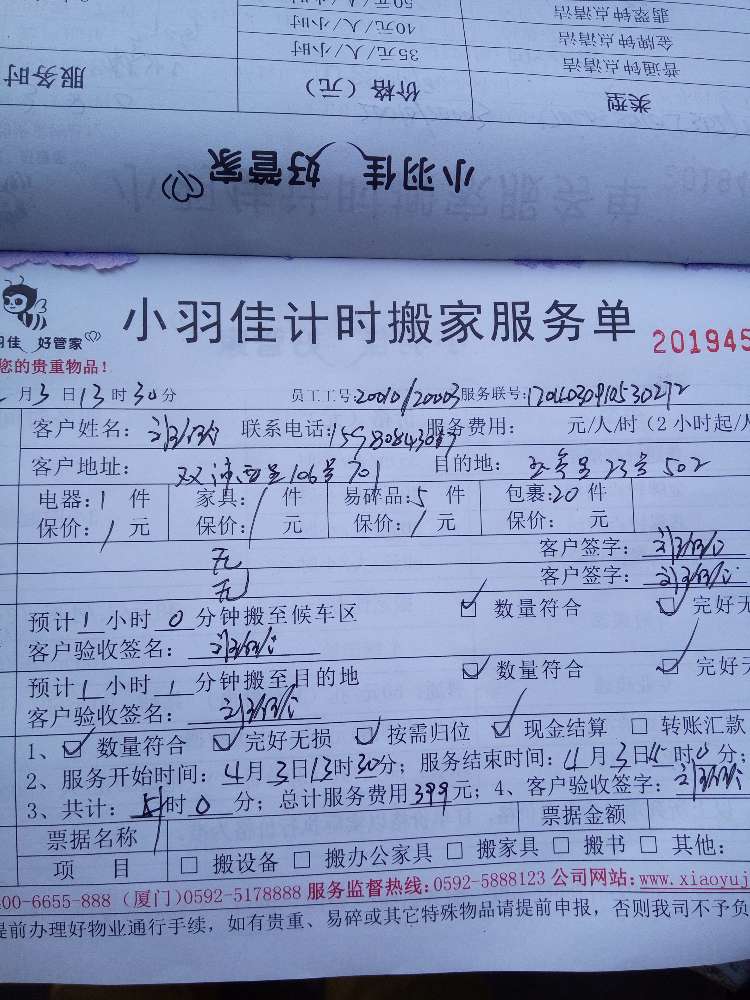 50元/人/小时
翡翠钟点清洁
40元/人/小时
金牌钟点清洁
35元/人/小时
普通钟点清洁
服务时
价格（元）
类型
小羽佳 好管家
小羽佳计时搬家服务单
羽佳 好管家
201945
您的贵重物品！
月3日13时30分 员工工号:20010/20003 服务联号:
客户姓名： 联系电话: 服务费用： 元/人/时（2小时起/人
客户地址： 106号701 目的地： 23号502
电器:1件 家具:/件 易碎品:5件 包裹:20件
保价:/元 保价:/元 保价:/元 保价: 元
无 客户签字：
无 客户签字：
预计1小时0分钟搬至候车区 ☑ 数量符合 ☑ 完好无
客户验收签名：
预计1小时1分钟搬至目的地 ☑ 数量符合 ☑ 完好无
客户验收签名：
1、☑ 数量符合 ☑ 完好无损 ☑ 按需归位 ☑ 现金结算 □ 转账汇款
2、服务开始时间：4月3日13时30分；服务结束时间：4月3日15时0分；
3、共计： 时0分；总计服务费用399元；4、客户验收签字：
票据名称 票据金额
项 目 □ 搬设备 □ 搬办公家具 □ 搬家具 □ 搬书 □ 其他:
00-6655-888（厦门）0592-5178888 服务监督热线:0592-5888123 公司网站:www.xiaoyuj
提前办理好物业通行手续，如有贵重、易碎或其它特殊物品请提前申报，否则我司不予负